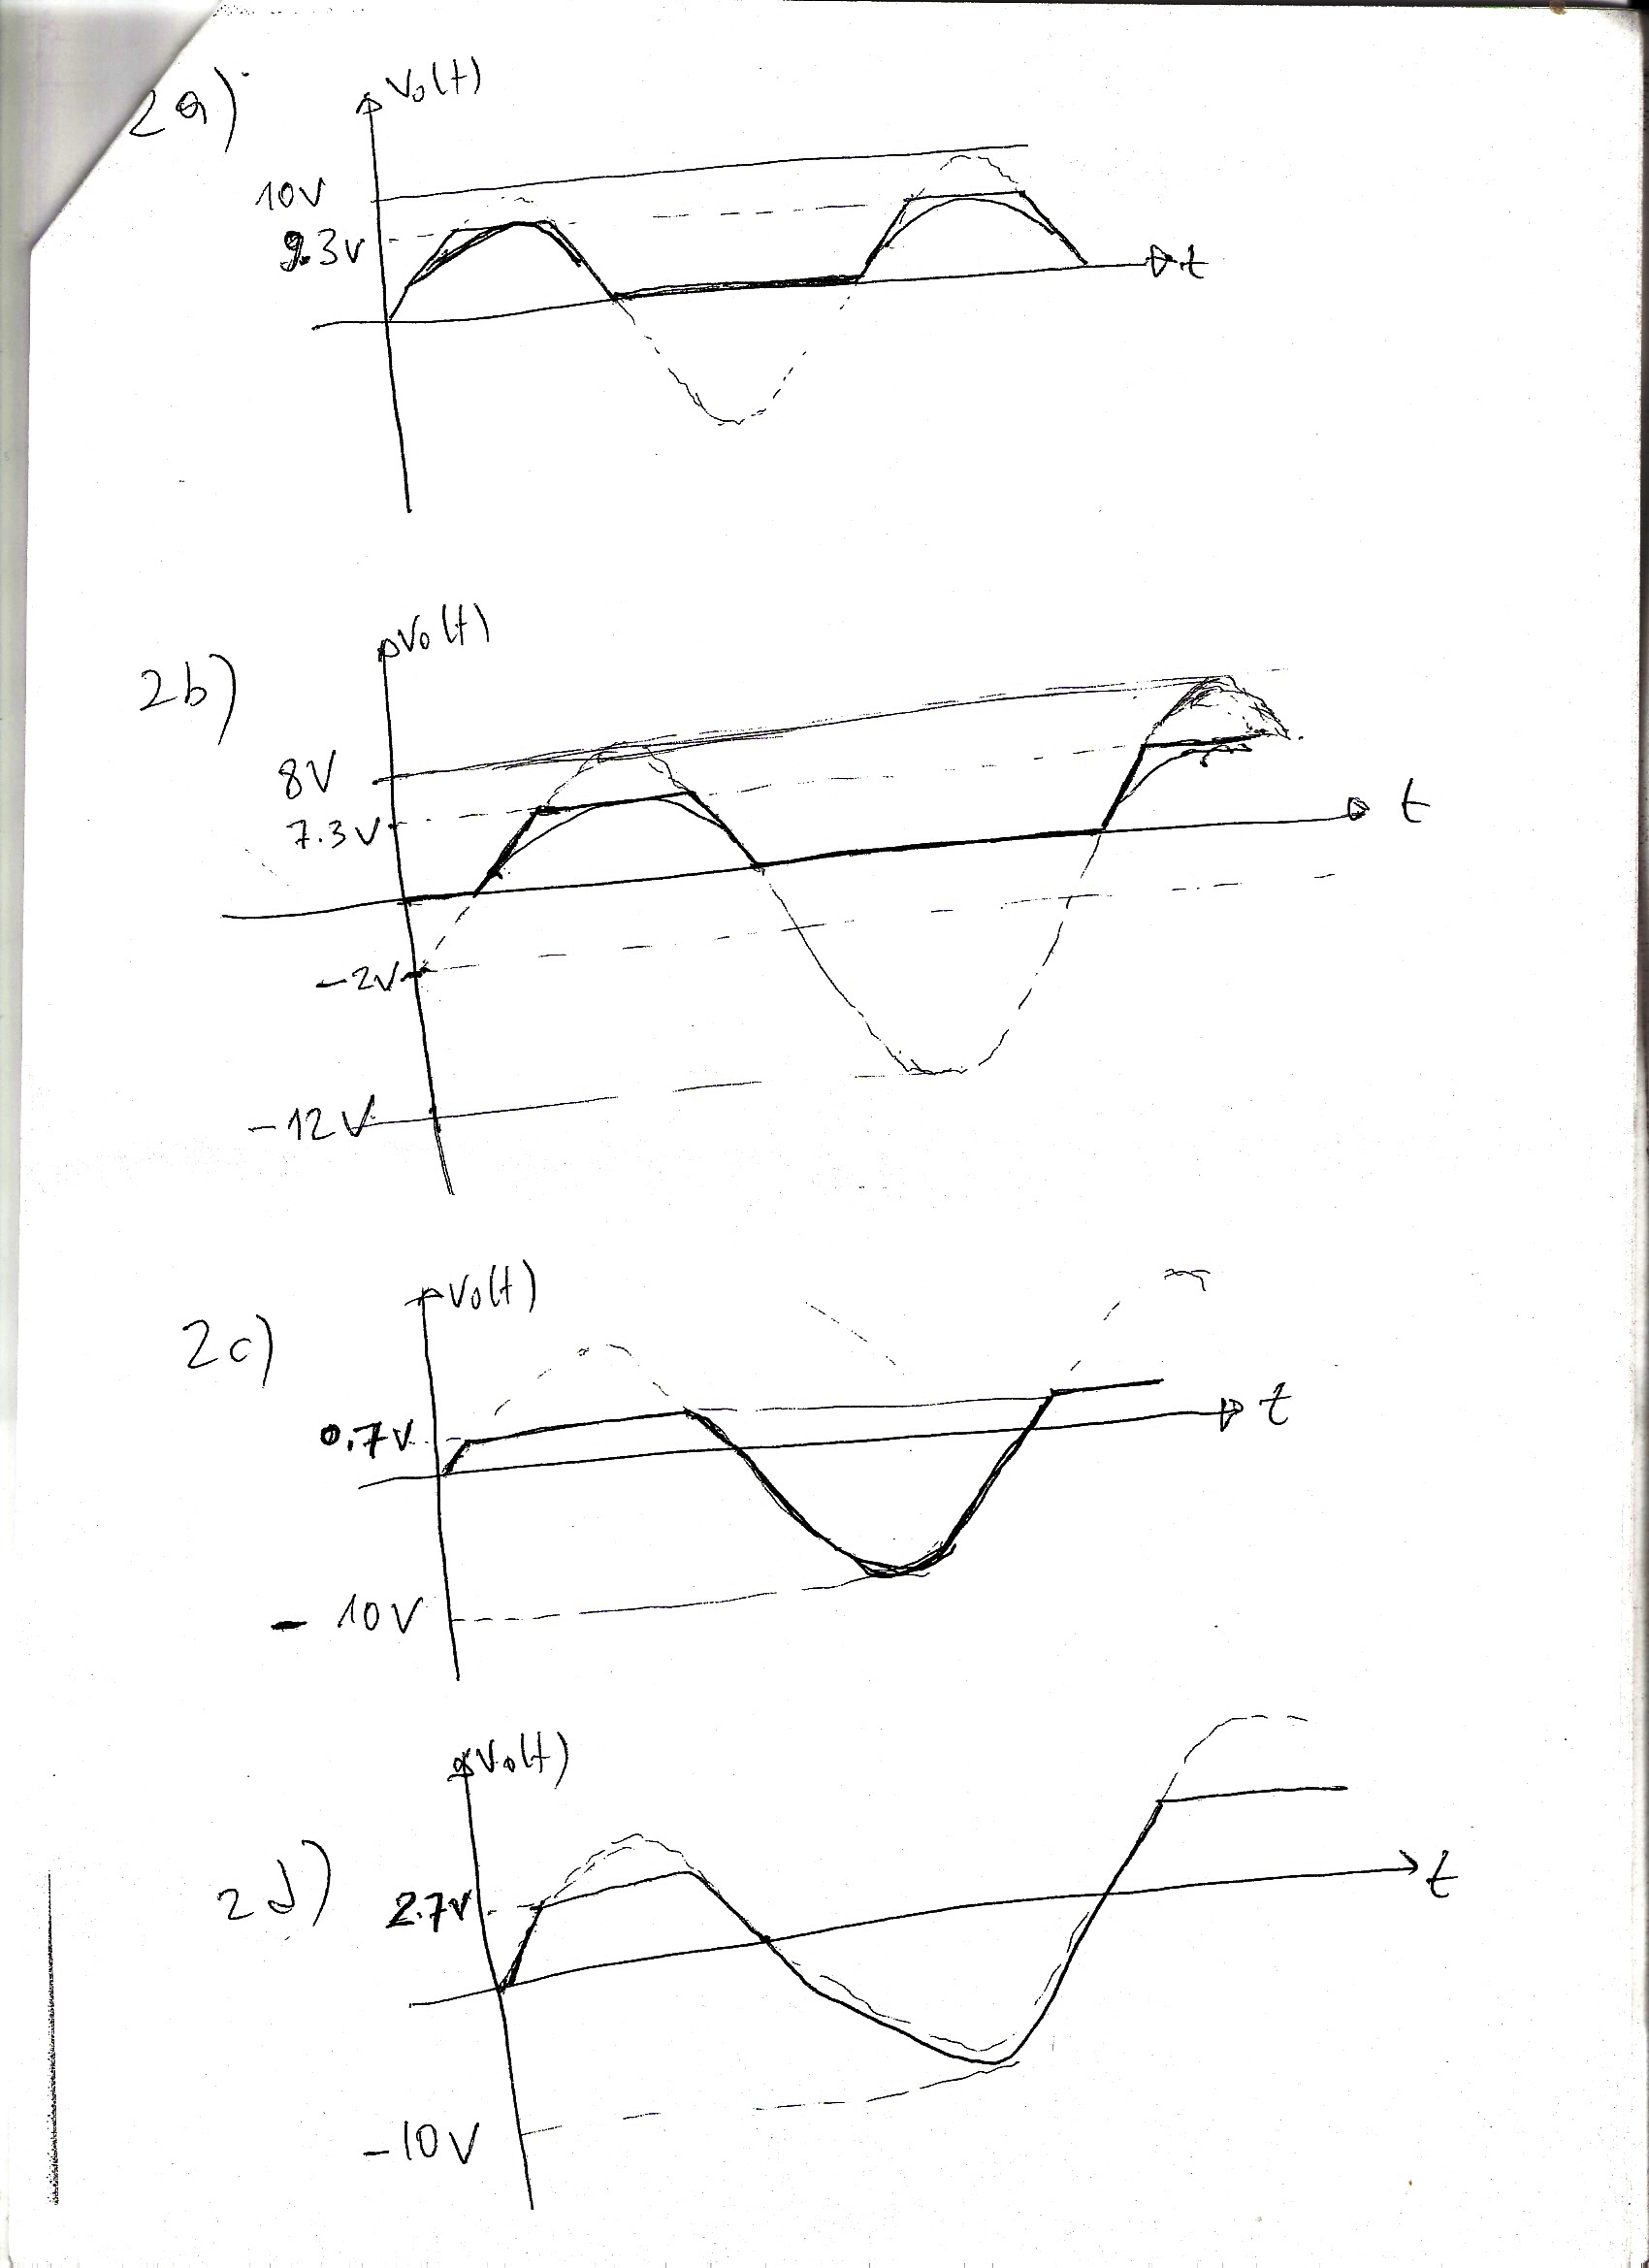 2a)
Vo(t)
10V
9.3V
t
2b)
Vo(t)
8V
7.3V
t
-2V
-12V
2c)
Vo(t)
0.7V
t
- 10V
2d)
Vo(t)
2.7V
t
-10V